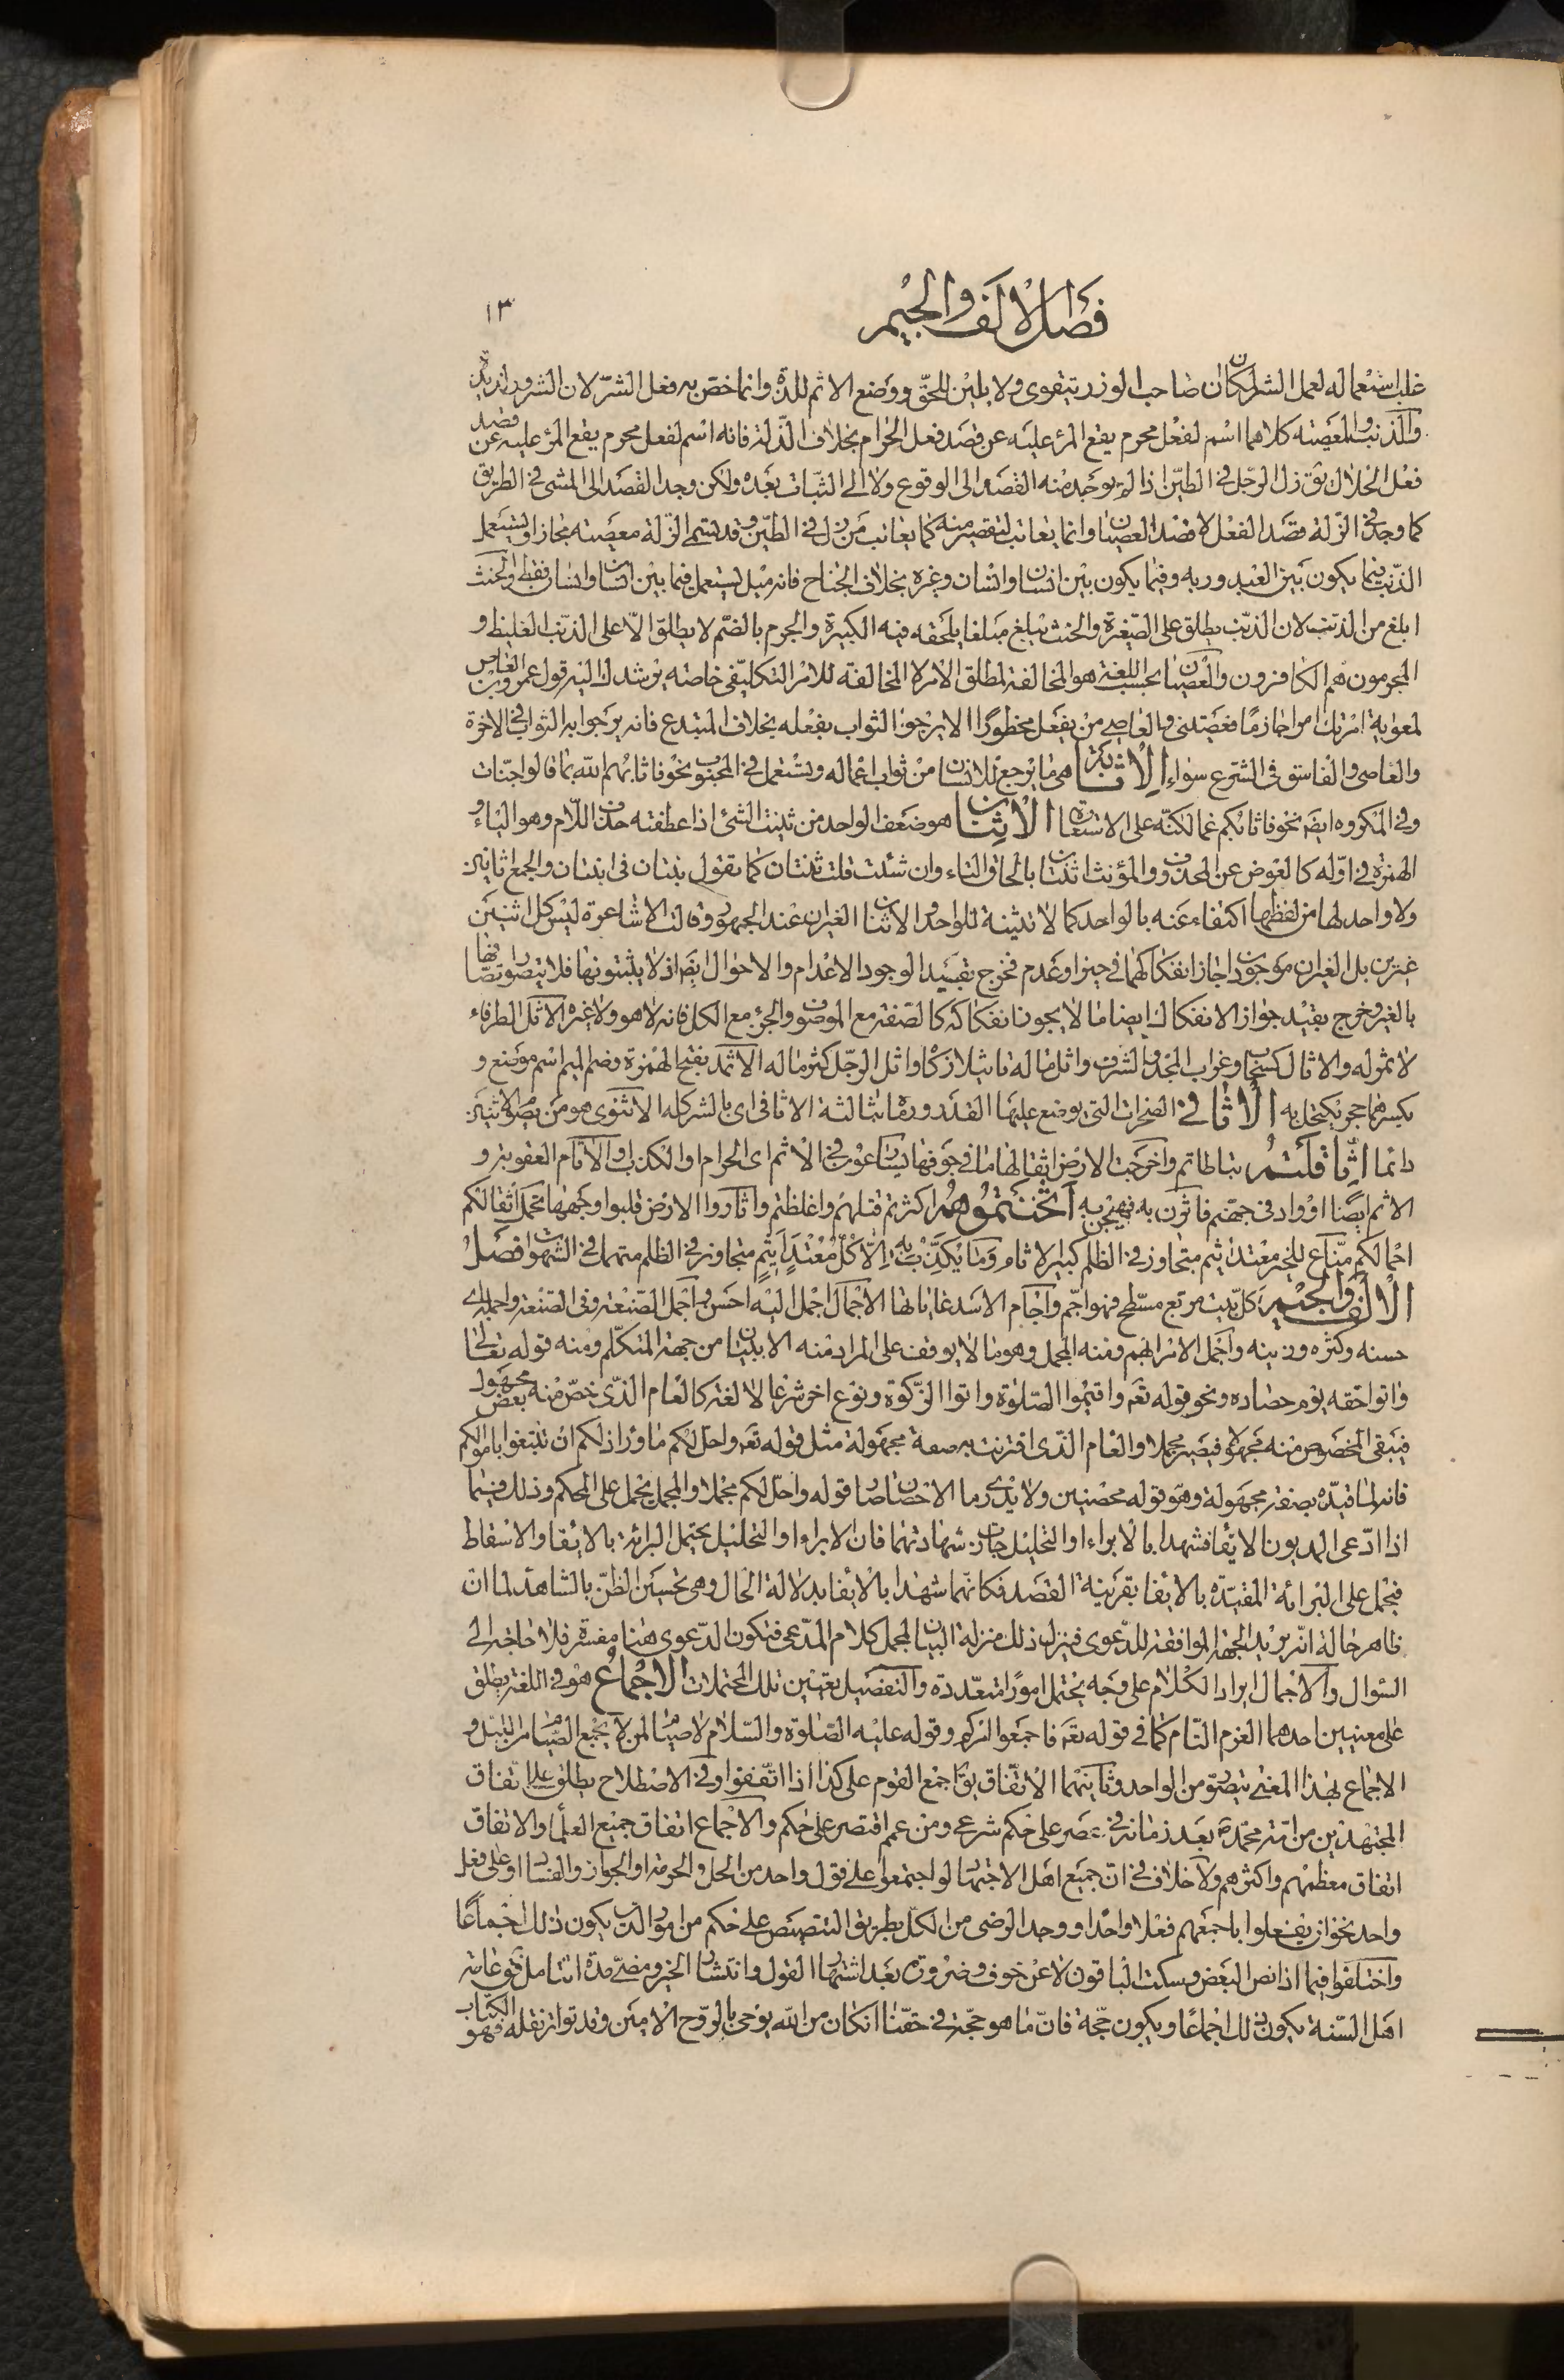 فصل الالف والجيم
١٣
غلب استعماله لعمل الشر لمكان ان صاحب الوزر يتقوى ولا يلين للحق ووضع الاثم للذة وانما خص به فعل الشر لان الشرور لذيذة
والذنب والمعصية كلاهما اسم لفعل محرم يقع المرء عليه عن قصد فعل الحرام بخلاف الذلة فانه اسم لفعل محرم يقع المرء عليه عن قصد
فعل الحلال يق زل الرجل فى الطين اذا لم يوجد منه القصد الى الوقوع ولا الى الثبات بعده ولكن وجد القصد الى المشى فى الطريق
كما وجد فى الزلة قصد الفعل لا قصد العصيان وانما يعاتب لتقصير منه كما يعاتب من زل فى الطين وقد تسمى الزلة معصية مجازا ويستعمل
الذنب فيما يكون بين العبد وربه وفيما يكون بين انسان وانسان وغيره بخلاف الجناح فانه ميل يستعمل فيما بين انسان وانسان فقط والحنث
ابلغ من الذنب لان الذنب يطلق على الصغيرة والحنث يبلغ مبلغا يلحقه فيه الكبيرة والجرم بالضم لا يطلق الا على الذنب الغليظ و
المجرمون هم الكافرون والعصيان بحسب اللغة هو المخالفة لمطلق الامر لا المخالفة للامر التكليفى خاصة يرشدك اليه قول عمرو بن العاص
لمعوية امرتك امرا جازما فعصيتنى والعاصى من يفعل محظورا لا يرجو الثواب بفعله بخلاف المبتدع فانه يرجو به الثواب فى الاخرة
والعاصى والفاسق فى الشرع سواء الاثابة هى ما يرجع للانسان من ثواب اعماله وتستعمل فى المحبوب نحو فاثابهم الله بما قالوا جنات
وفى المكروه ايضه نحو فاثابكم غما لكنه على الاستعارة الاثنان هو ضعف الواحد من ثنيت الشئ اذا عطفته حذف اللام وهو الياء و
الهمزة فى اوله كالعوض عن المحذوف والمؤنث اثنتان بالحاق التاء وان شئت قلت ثنتان كما تقول بنتان فى ابنتان والجمع اثانين
ولا واحد لها من لفظها اكتفاء عنه بالواحد كما لا تثنية للواحد والاثنان الغيران عند الجمهور وقالت الاشاعرة ليس كل اثنين
غيرين بل الغيران موجودان جاز انفكاكهما فى حيز او عدم فخرج بقيد الوجود الاعدام والاحوال ايضه اذ لا يثبتونها فلا يتصور اتصافها
بالغير وخرج بقيد جواز الانفكاك ايضا ما لا يجوز انفكاكه كالصفة مع الموصوف والجزء مع الكل فانه لا هو ولا غيره الاثل الطرفاء
لا ثمر له والاثال كسحاب وغراب المجد والشرف واثل ماله تاثيلا زكاه واثل الرجل كثر ماله الاثمد بفتح الهمزة وضم الميم اسم موضع و
بكسرهما حجر يكتحل به الاثافى الصخرات التى يوضع عليها القدر ورماه بثالثة الاثافى اى بالشر كله الاثنوى هو من يصوم الاثنين
دائما اثاقلتم تباطاتم واخرجت الارض اثقالها ما فى جوفها يتسارعون فى الاثم اى الحرام والكذب او الآثام العقوبة و
الاثم ايضا او واد فى جهنم فاثرن به فهيجن به اثخنتموهم اكثرتم قتلهم واغلظتم واثاروا الارض قلبوا وجهها تحمل اثقالكم
احمالكم مناع للخير معتد اثيم متجاوز فى الظلم كبير الاثام وما يكذب به الا كل معتد اثيم متجاوز فى الظلم منهمك فى الشهوات فصل
الالف والجيم كل بيت مربع مسطح فهو اجم واجام الاسد غاباتها الاجمال اجمل اليه احسن واجمل الصنعة وفى الصنعة واجمله اى
حسنه وكثره وزينه واجمل الامر ابهم ومنه المجمل وهو ما لا يوقف على المراد منه الا ببيان من جهة المتكلم ومنه قوله تعالى
واتوا حقه يوم حصاده ونحو قوله تعه واقيموا الصلوة واتوا الزكوة ونوع اخر شرعا لا لغة كالعام الذى خص منه بعض مجهول
فيبقى المخصوص منه مجهولا فيصير مجملا والعام الذى اقترنت به صفة مجهولة مثل قوله تعه واحل لكم ما وراء ذلكم ان تبتغوا باموالكم
فانه لما قيده بصفة مجهولة وهو قوله محصنين ولا يدرى ما الاحصان صار قوله واحل لكم مجملا والمجمل يحمل على المحكم وذلك فيما
اذا ادعى المديون الايفاء فشهدا بالابراء او التحليل جازت شهادتهما فان الابراء او التحليل يحتمل البرائة بالايفاء والاسقاط
فيحمل على البرائة المقيدة بالايفاء بقرينة القصد فكانهما شهدا بالايفاء بدلالة الحال وهى تحسين الظن بالشاهد لما ان
ظاهر حاله انه يريد الجهة الموافقة للدعوى فينزل ذلك منزلة البيان لمجمل كلام المدعى فتكون الدعوى هنا مفسرة فلا حاجة الى
السوال والاجمال ايراد الكلام على وجه يحتمل امورا متعددة والتفصيل تعيين تلك المحتملات الاجماع هو فى اللغة يطلق
على معنيين احدهما العزم التام كما فى قوله تعه فاجمعوا امركم وقوله عليه الصلوة والسلام لا صيام لمن لا يجمع الصيام من الليل و
الاجماع بهذا المعنى يتصور من الواحد وثانيهما الاتفاق يق اجمع القوم على كذا اذا اتفقوا وفى الاصطلاح يطلق على اتفاق
المجتهدين من امة محمد ص بعد زمانه فى عصر على حكم شرعى ومن عمم اقتصر على حكم والاجماع اتفاق جميع العلماء والاتفاق
اتفاق معظمهم واكثرهم ولا خلاف فى ان جميع اهل الاجتهاد لو اجتمعوا على قول واحد من الحل والحرمة او الجواز والفساد او على فعل
واحد نحو ان يفعلوا باجمعهم فعلا واحدا ووجد الرضى من الكل بطريق التنصيص على حكم من امور الدين يكون ذلك اجماعا
واختلفوا فيما اذا نص البعض وسكت الباقون لا عن خوف وضرورة بعد اشتهار القول وانتشار الخبر ومضى مدة التامل فق عامة
اهل السنة يكون ذلك اجماعا ويكون حجة فان ما هو حجة فى حقنا ان كان من الله يوحى بالروح الامين وقد تواتر نقله فهو الكتاب